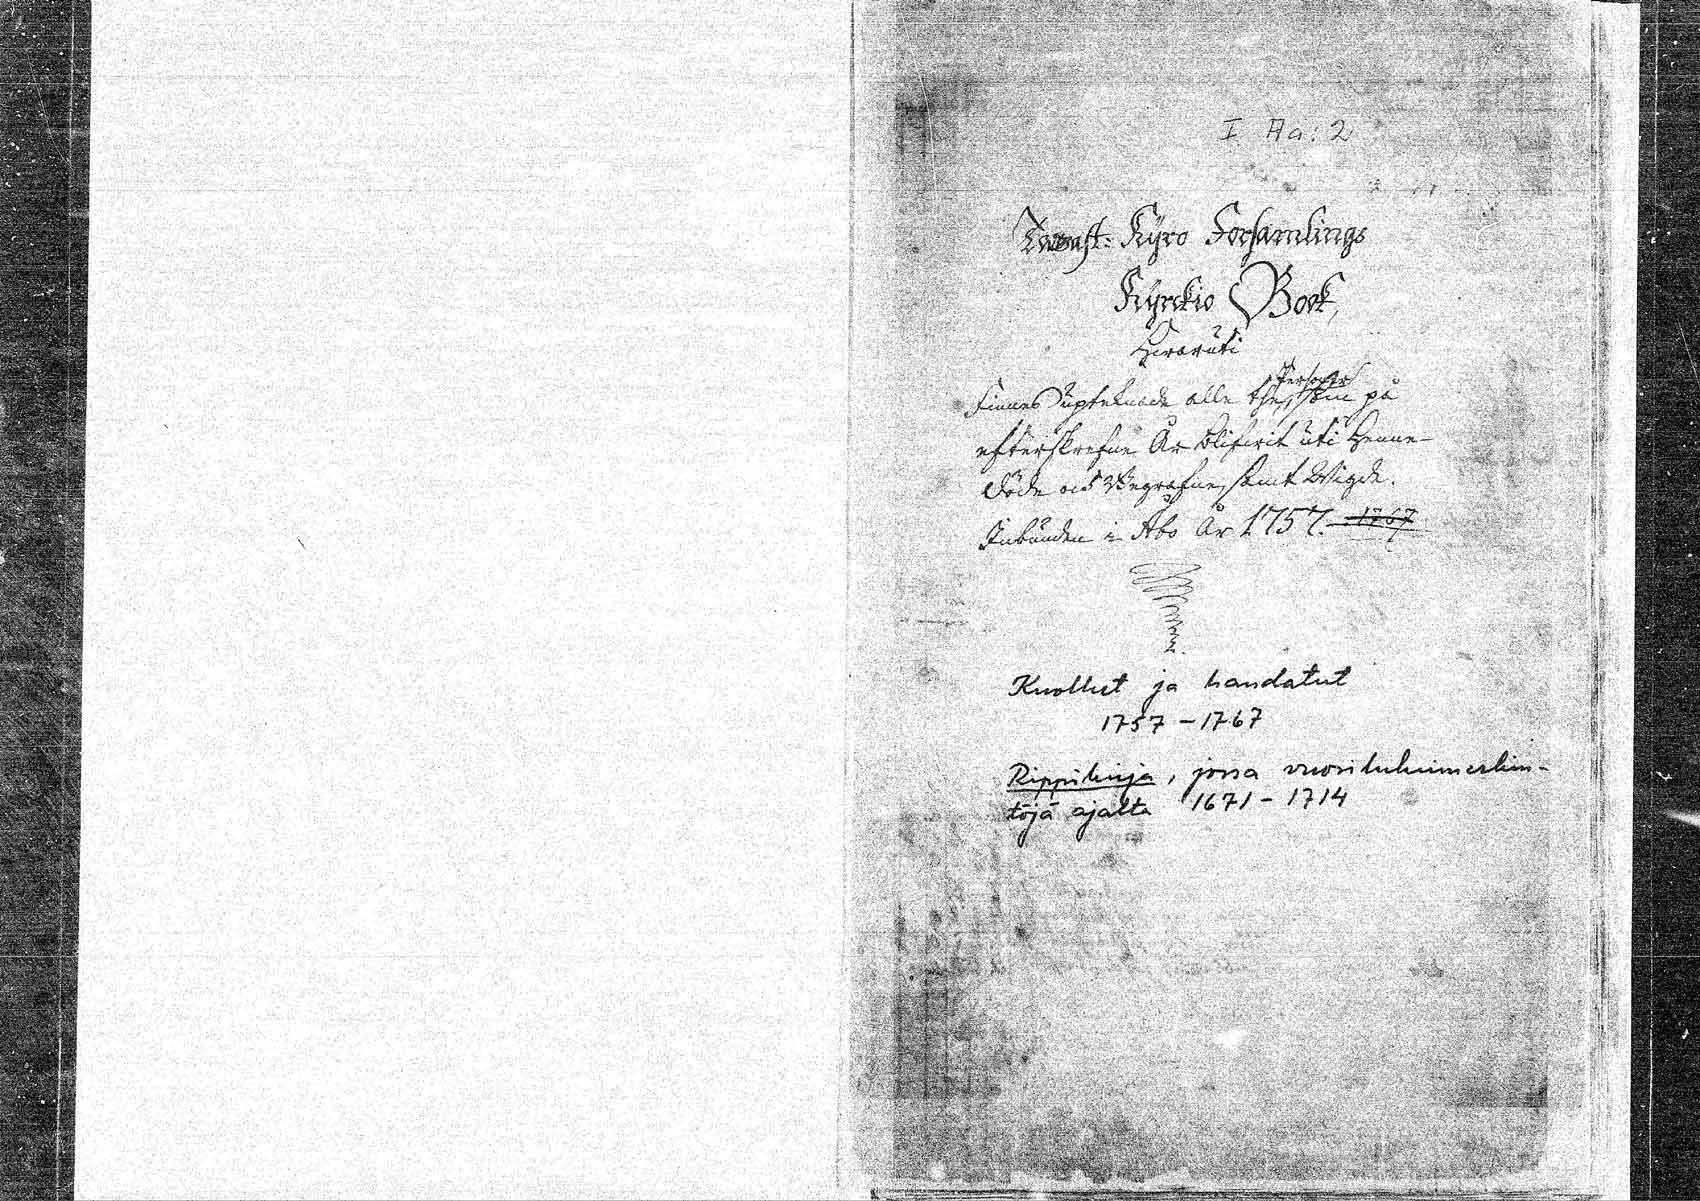 I Aa: 2
Tavast: Kyro Forsamlings
Kyrckio Book,
Hwaruti
Personer
Finnes Upteknade alle the, som på
efterskrefne År blifwit uti Henne
döde och Begrafne, samt Wigde.
Inbunden i Åbo År 1757. 1767
Kuollut ja haudatut
1757 - 1767
Rippikirja, jossa vuosilukumerkin-
töjä ajalta 1671 - 1714